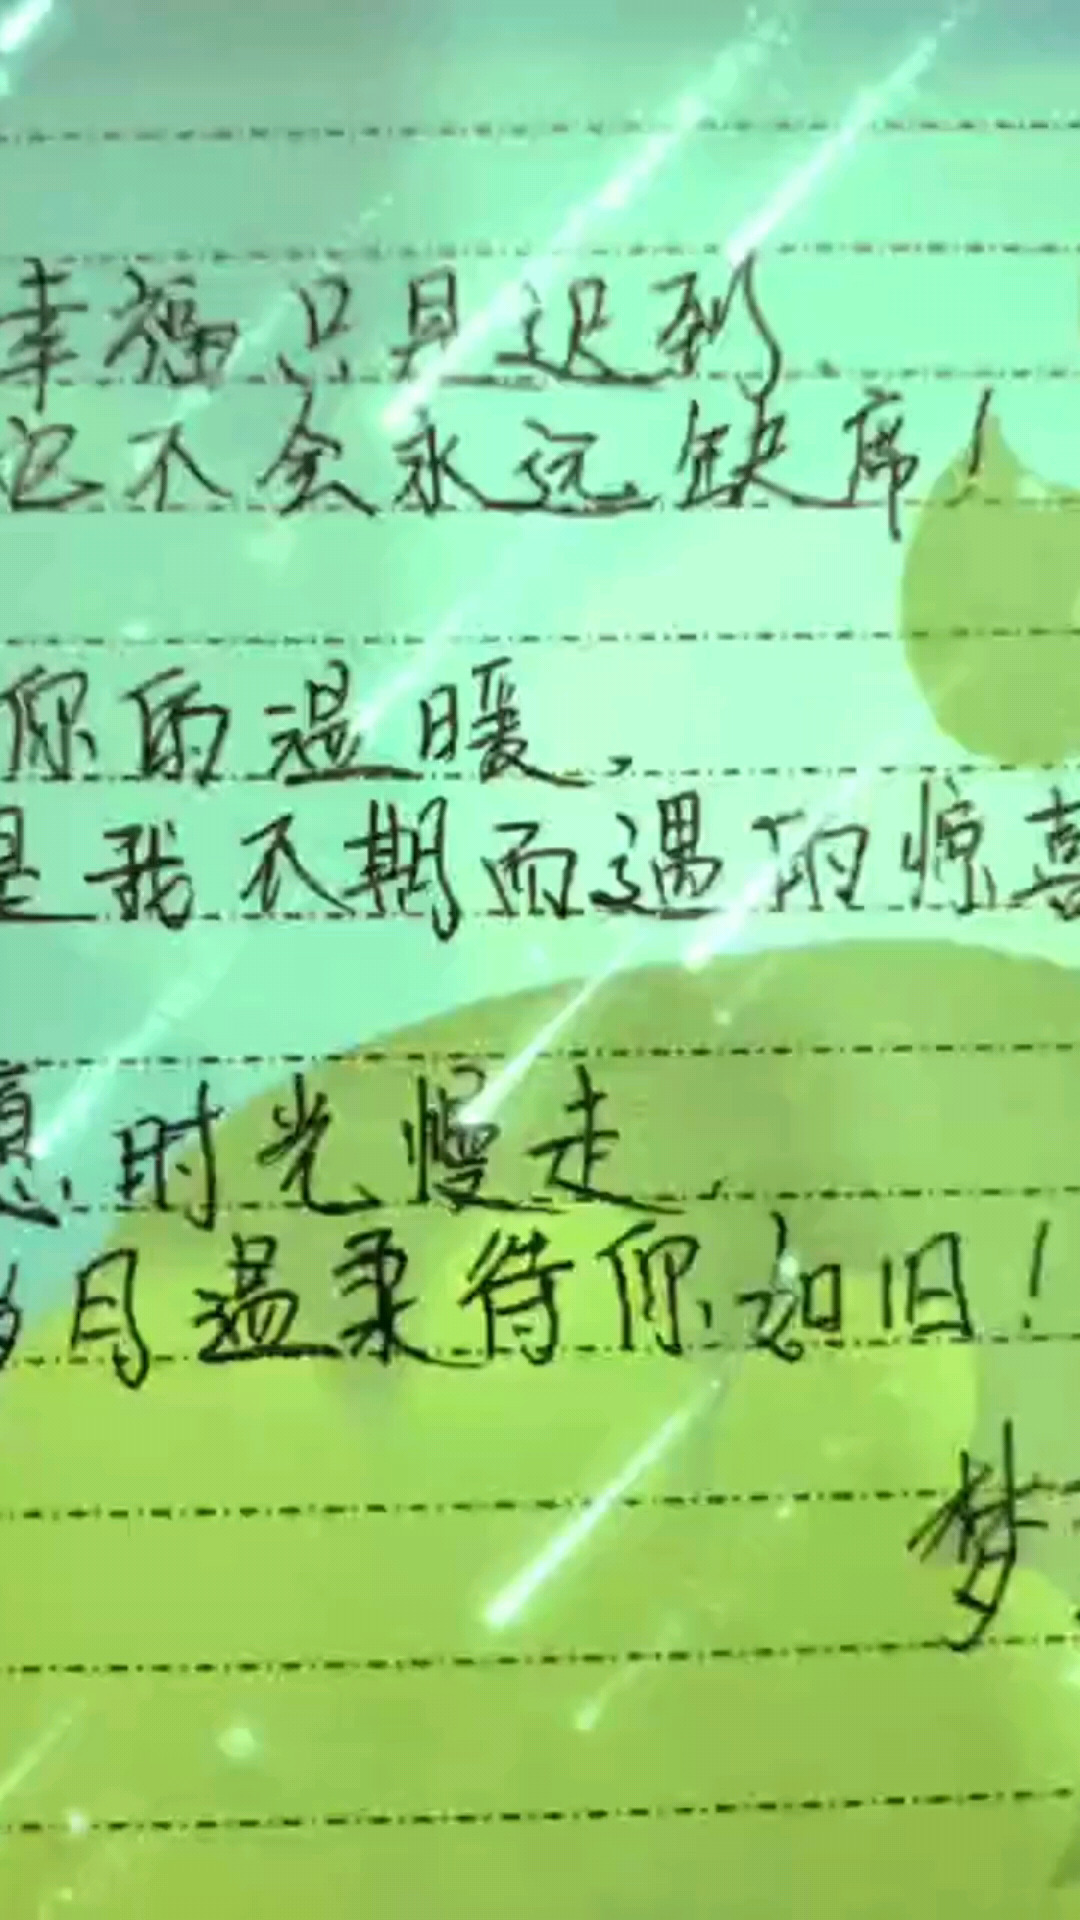 幸福只是迟到、
它不会永远缺席！
你的温暖、
是我不期而遇的惊喜
愿时光慢走、
岁月温柔待你如旧！
梦